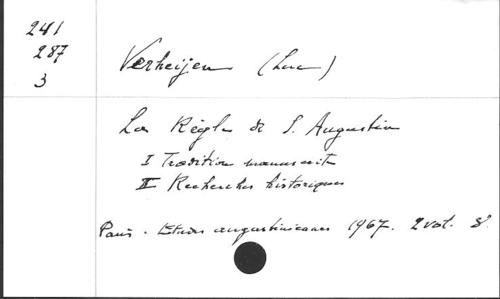 241
287
3
Verheijen (Luc)
La Règle de S. Augustin
I Tradition manuscrite
II Recherches historiques
Paris. Etudes augustiniennes 1967. 2 vol. 8°